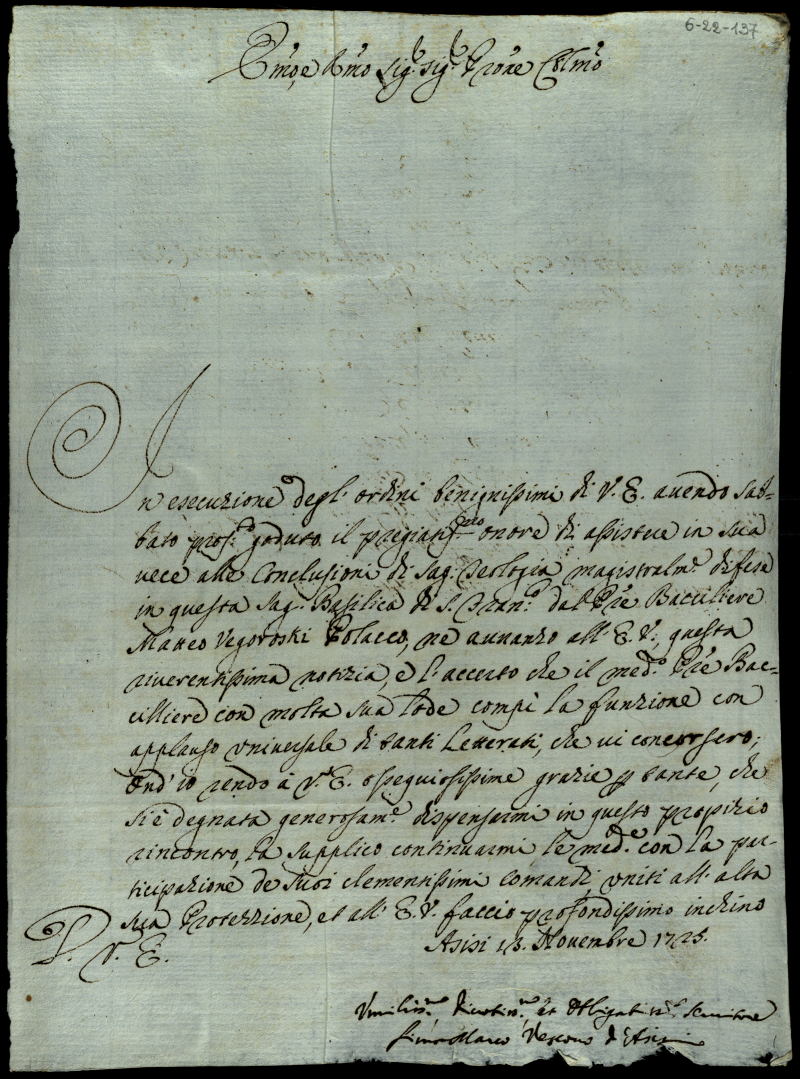 6-22-137
Em̃o, e Rm̃o Sig.r Sig.r Prone Colmo
In esecuzione degl' ordini benignissimi di V. E. auendo Sab=
bato pros.o goduto il pregiatis.mo onore di assistere in sua
vece alle Conclusioni di Sag. Teologia magistralm.e difese
in questa Sag. Basilica di S. Fran.o dal Pre Baccilliere
Matteo Vegoroski Polacco, ne auuanzo all' E. V. questa
riuerentissima notizia, e l'accerto che il med.o Pre Bac=
cilliere con molta sua lode compì la funzione con
applauso vniuersale di tanti Letterati, che ui concorsero;
Ond' io rendo à V. E. ossequiosissime grazie p tante, che
si è degnata generosam.e dispensarmi in questo propizio
rincontro, la supplico continuarmi le med.e con la par=
ticipazione de Suoi clementissimi comandi, vniti all' alta
sua Protezzione, et all' E. V. faccio profondissimo inchino
D. V. E.
Asisi 13. Nouembre 1725.
Vmiliss.mo Diuotiss.mo et Obligatiss.o Seruitore
Vescouo d'Asisi